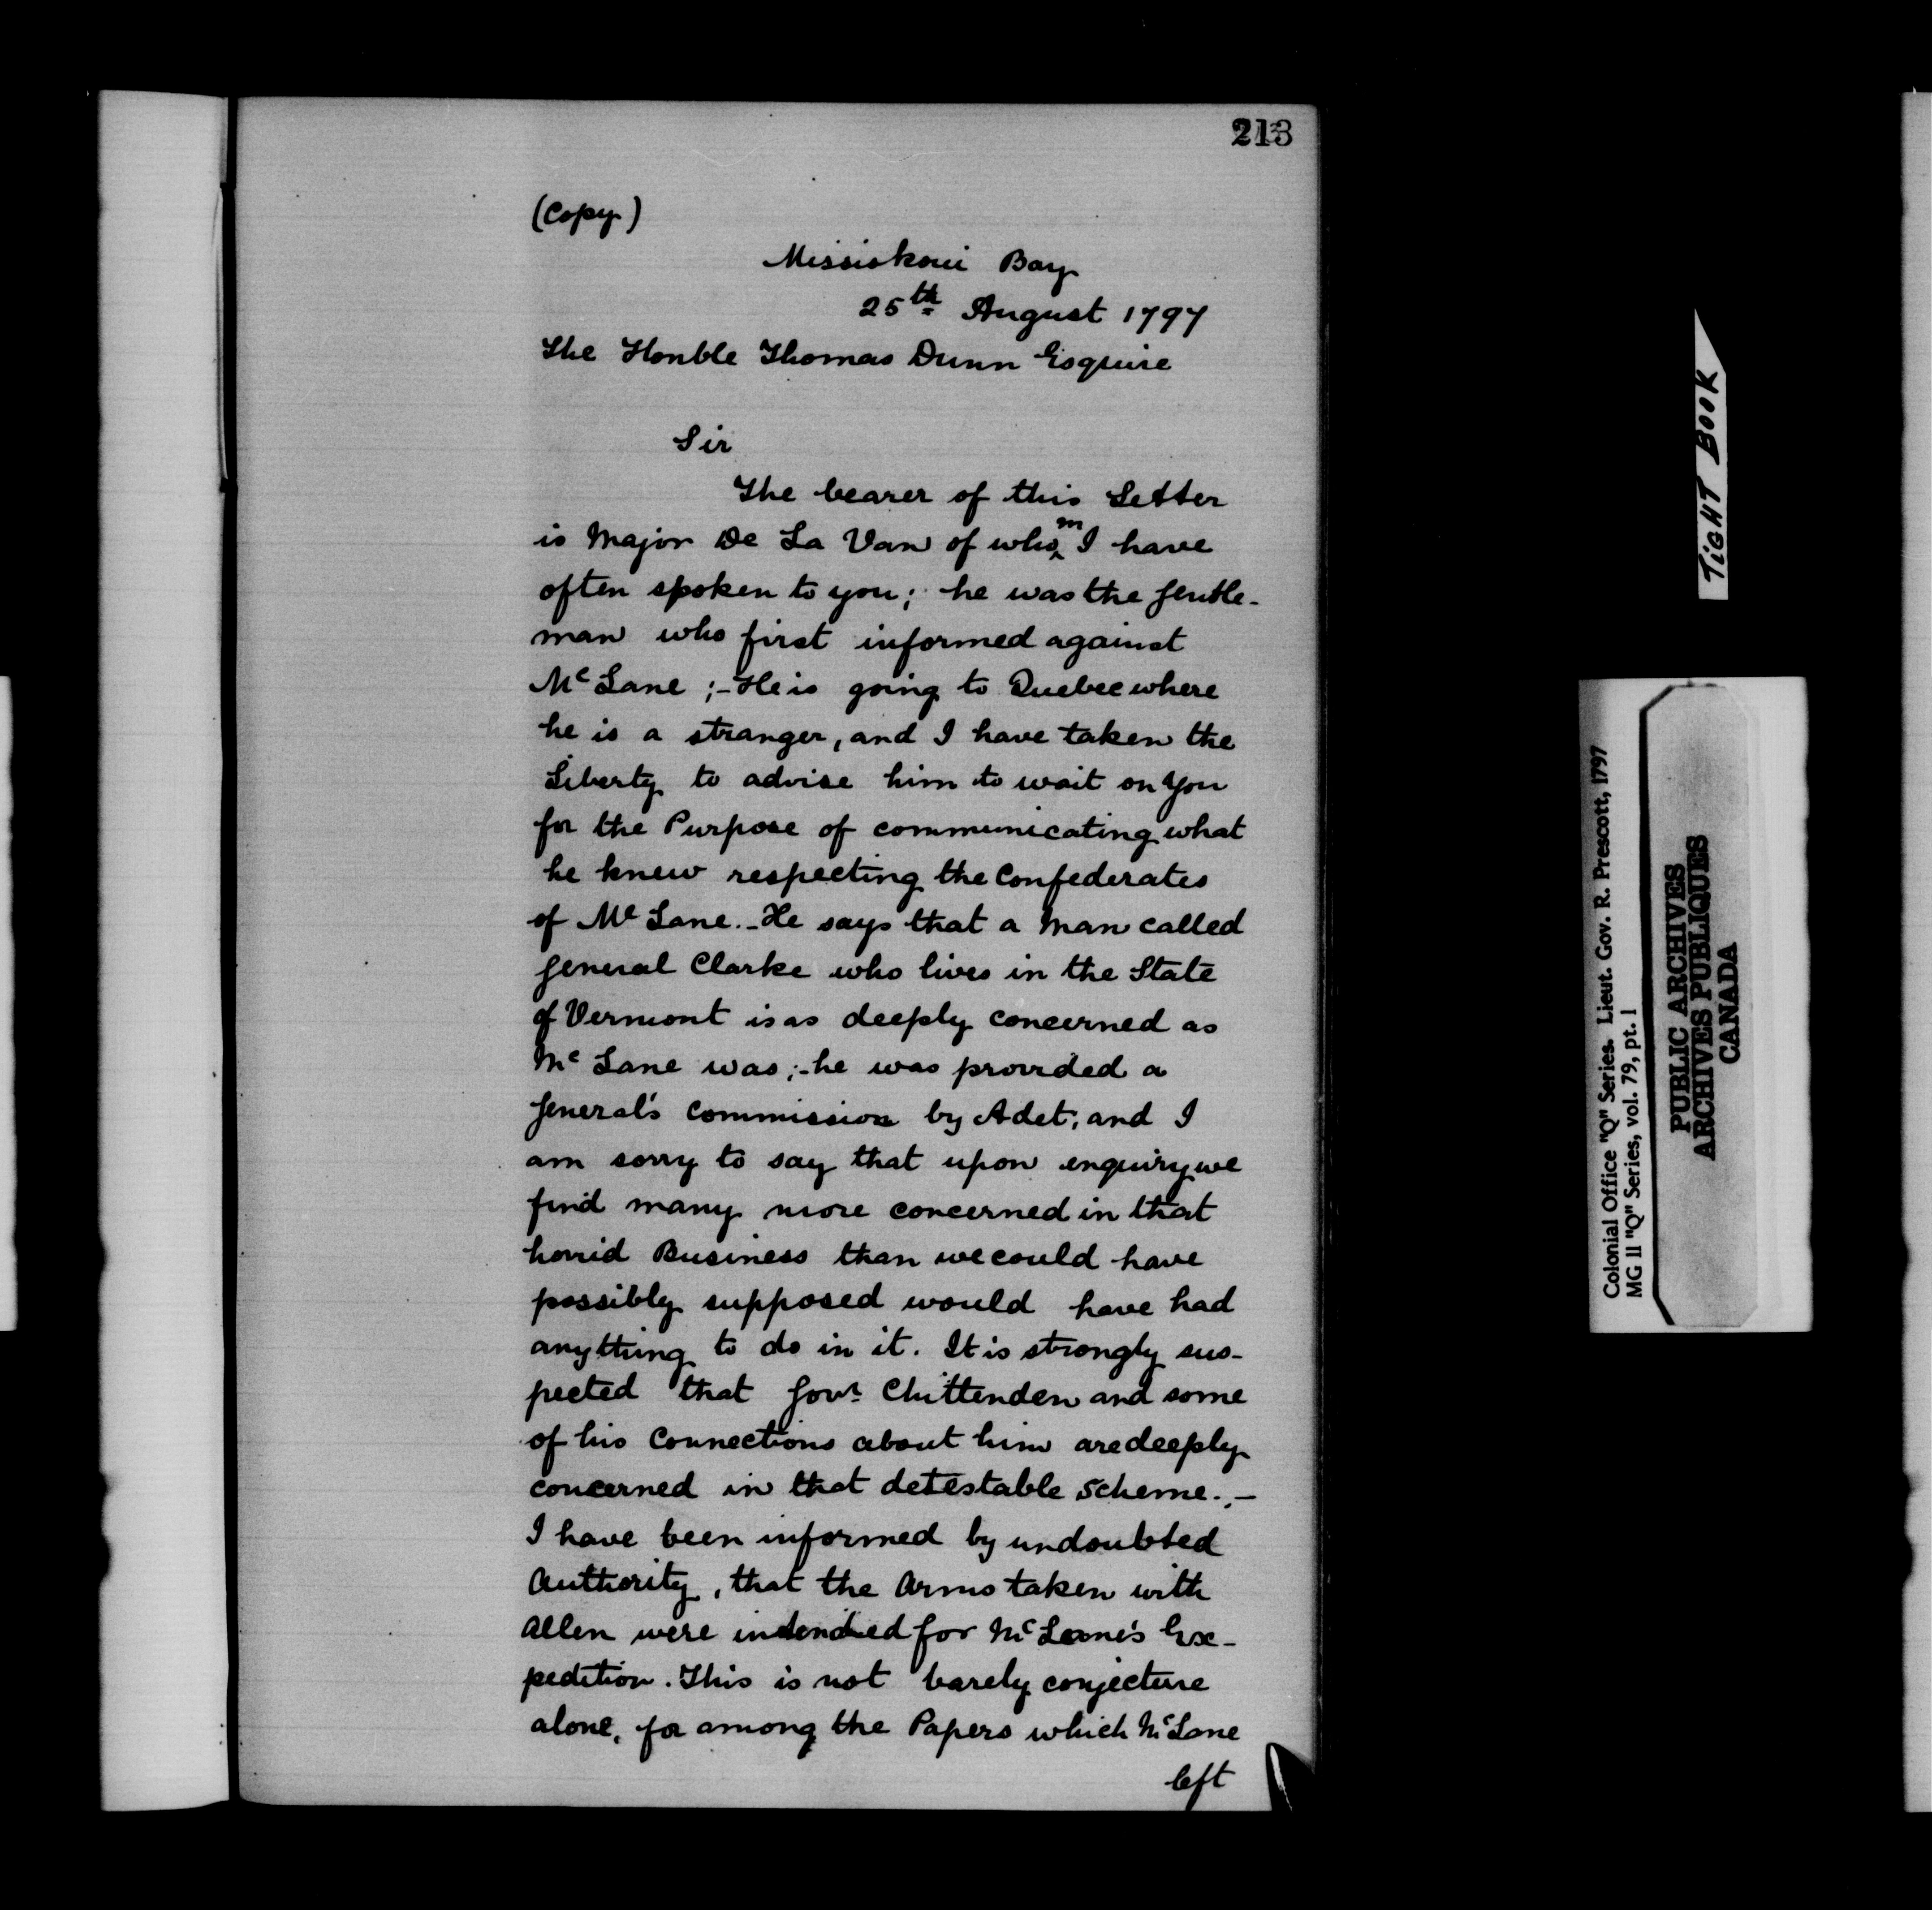 213
(Copy)
Missiskoui Bay
25th August 1797
The Honble Thomas Dunn Esquire
Sir
The bearer of this Letter
is Major De La Van of whom I have
often spoken to you; he was the Gentle-
man who first informed against
McLane;- He is going to Quebec where
he is a stranger, and I have taken the
Liberty to advise him to wait on You
for the Purpose of communicating what
he knew respecting the Confederates
of McLane.- He says that a Man called
General Clarke who lives in the State
of Vermont is as deeply concerned as
McLane was;- he was provided a
General's Commission by Adet, and I
am sorry to say that upon enquiry we
find many more concerned in that
horrid Business than we could have
possibly supposed would have had
anything to do in it. It is strongly sus-
pected that Govr. Chittenden and some
of his Connections about him are deeply
concerned in that detestable Scheme.,-
I have been informed by undoubted
Authority, that the Arms taken with
Allen were indended for McLane's Ex-
pedition. This is not barely conjecture
alone, for among the Papers which McLane
left
TIGHT BOOK
Colonial Office "Q" Series. Lieut. Gov. R. Prescott, 1797
MG 11 "Q" Series, vol. 79, pt. 1
PUBLIC ARCHIVES
ARCHIVES PUBLIQUES
CANADA